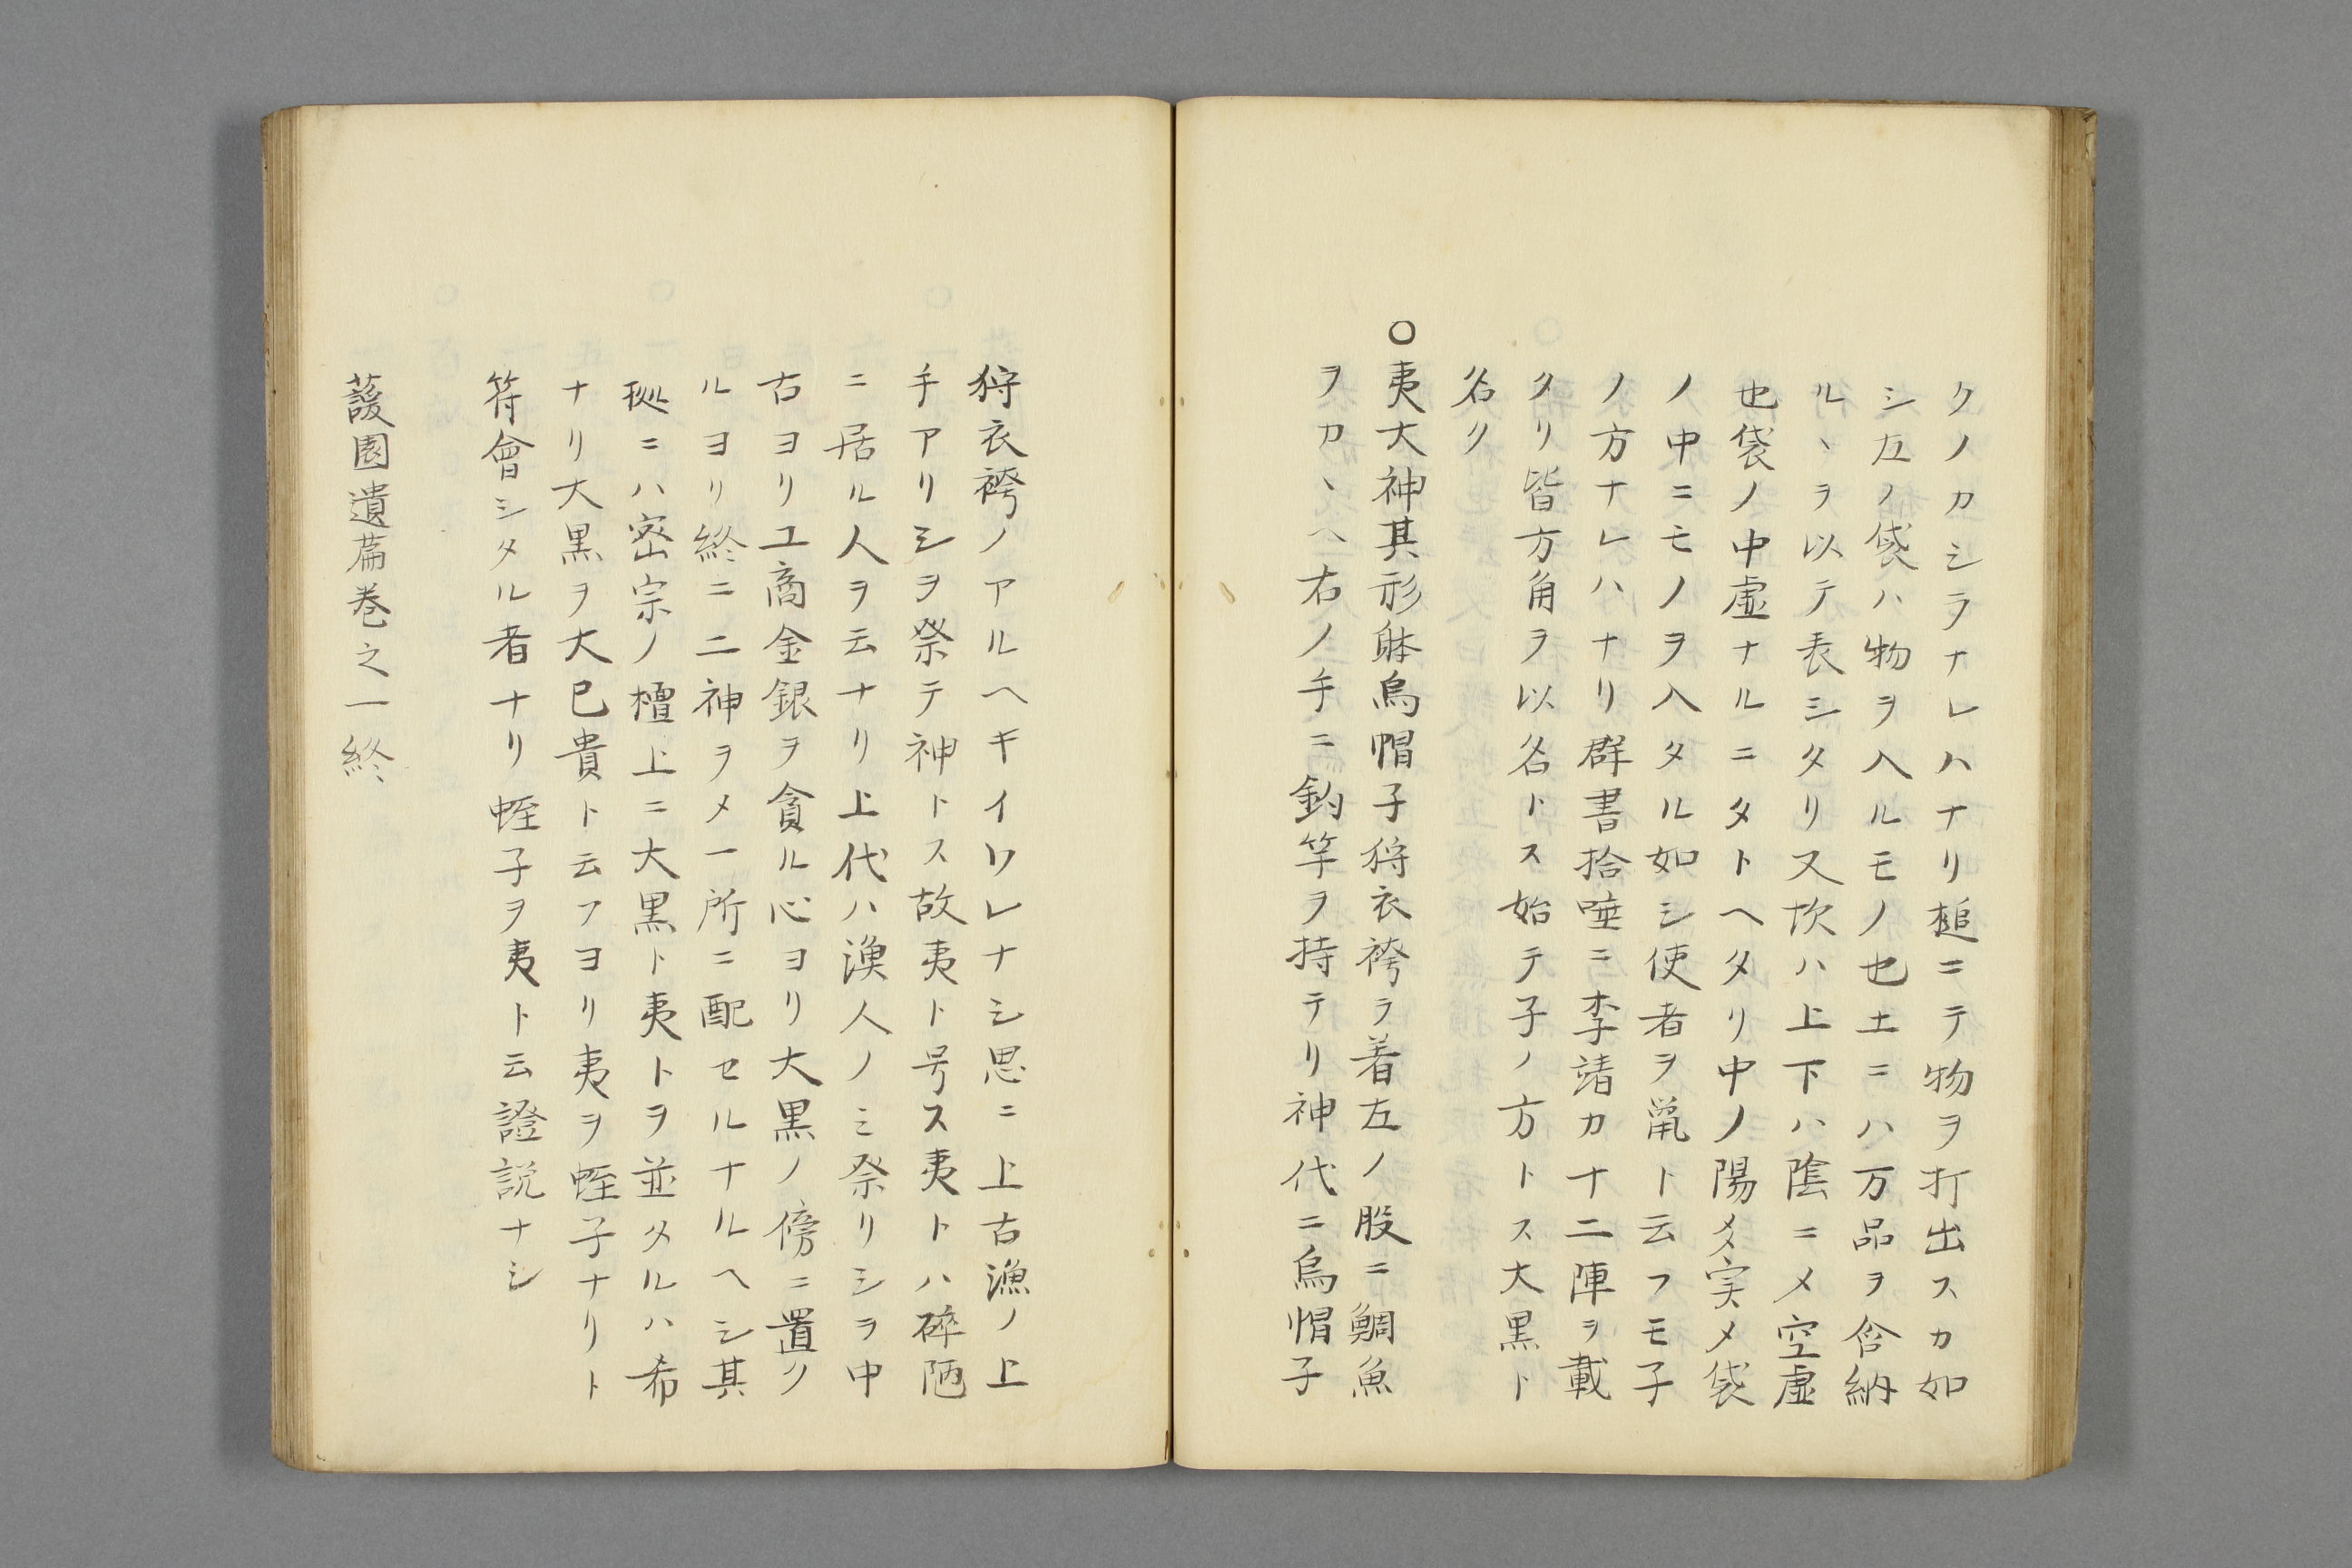 クノカシラナレハナリ槌ニテ物ヲ打出スカ如
シ左ノ袋ハ物ヲ入ルモノ也土ニハ万品ヲ含納
ルヽヲ以テ表シタリ又坎ハ上下ハ陰ニメ空虚
也袋ノ中虚ナルニタトヘタリ中ノ陽爻実メ袋
ノ中ニモノヲ入タル如シ使者ヲ鼠ト云フモ子
ノ方ナレハナリ群書拾唾ニ李靖カ十二陣ヲ載
タリ皆方角ヲ以名トス始テ子ノ方トス大黒ト
名ク
○夷大神其形躰烏帽子狩衣袴ヲ着左ノ股ニ鯛魚
ヲカヽヘ右ノ手ニ釣竿ヲ持テリ神代ニ烏帽子
狩衣袴ノアルヘキイワレナシ思ニ上古漁ノ上
手アリシヲ祭テ神トス故夷ト号ス夷トハ碎陋
ニ居ル人ヲ云ナリ上代ハ漁人ノミ祭リシヲ中
古ヨリ工商金銀ヲ貪ル心ヨリ大黒ノ傍ニ置ク
ルヨリ終ニ二神ヲメ一所ニ配セルナルヘシ其
拠ニハ密宗ノ檀上ニ大黒ト夷トヲ並タルハ希
ナリ大黒ヲ大已貴ト云フヨリ夷ヲ蛭子ナリト
符會シタル者ナリ蛭子ヲ夷ト云證説ナシ
蘐園遺篇巻之一終